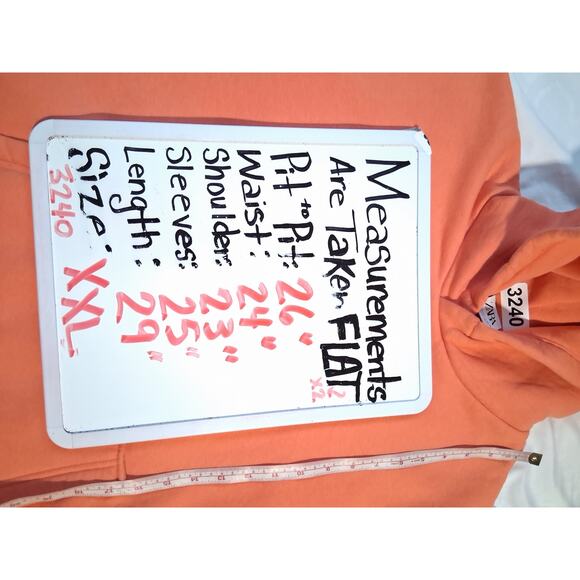 Measurements
Are Taken FLAT
x2
x2
Pit to Pit: 26"
Waist: 24"
Shoulder: 23"
Sleeves: 25"
Length: 29"
Size: XXL
3240
3240